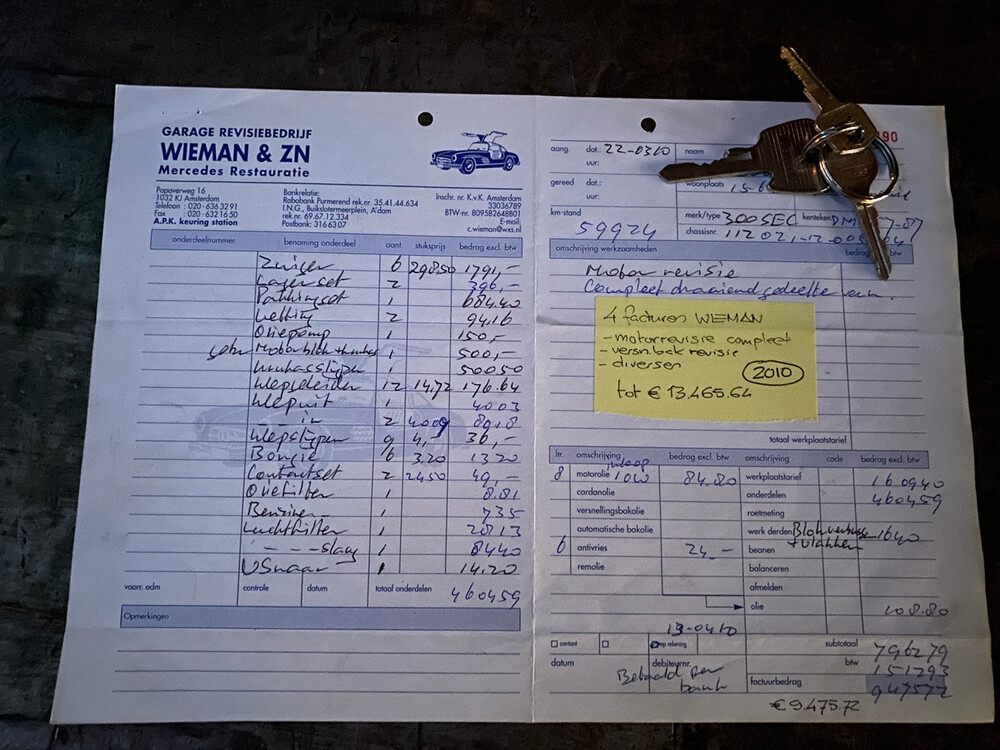 GARAGE REVISIEBEDRIJF
WIEMAN & ZN
Mercedes Restauratie
Papaverweg 16
1032 KJ Amsterdam
Telefoon : 020 - 636 32 91
Fax : 020 - 632 16 50
A.P.K. keuring station
Bankrelatie:
Rabobank Purmerend rek.nr. 35.41.44.634
I.N.G., Buikslotermeerplein, A'dam
rek.nr. 69.67.12.334
Postbank: 316 63 07
Inschr. nr. K.v.K. Amsterdam
33036789
BTW-nr. 809582648B01
E-mail:
c.wieman@wxs.nl
onderdeelnummer benaming onderdeel aant. stuksprijs bedrag excl. btw
Zuiger 6 298.50 1791,-
Lagerset 2 396,-
Pakkingset 1 684.40
Ketting 2 94.16
Oliepomp 1 150,-
Motorblok 1 500,-
1 500.50
Klepgeleider 12 14,72 176.64
Klepuit 1 40.03
- - in 2
Klepstypen 9 4,- 36,-
Bougie 6 3,20
Contactset 2 24.50 49,-
Oliefilter 1 8.81
Benzine - 1 7.35
Luchtfilter 1
- - - slang 1 84.40
VSnaar 1 14.20
voorr. adm controle datum totaal onderdelen 4604.59
Opmerkingen
90
aang. dat.: 22-03-10 naam
uur:
gereed dat.: woonplaats
uur:
km-stand 59924
merk/type 300SEC kenteken DM
chassisnr. 112021-12-00
omschrijving werkzaamheden bedrag
Motor revisie
Compleet draaiend gedeelte
4 facturen WIEMAN
- motorrevisie compleet
- versn.bak revisie
- diversen
2010
tot € 13.465.64
totaal werkplaatstarief
ltr. omschrijving bedrag excl. btw omschrijving code bedrag excl. btw
8 motorolie inloop 10W 84.80 werkplaatstarief 1609.40
cardanolie onderdelen 4604.59
versnellingsbakolie roetmeting
automatische bakolie werk derden Blok 1640
+ vlakken
6 antivries 24,- beanen
remolie balanceren
afmelden
olie 108.80
13-04-10
contant op rekening subtotaal 7962.79
datum debiteurnr. btw 1512.93
Betaald per bank
factuurbedrag 9475.72
€ 9.475.72